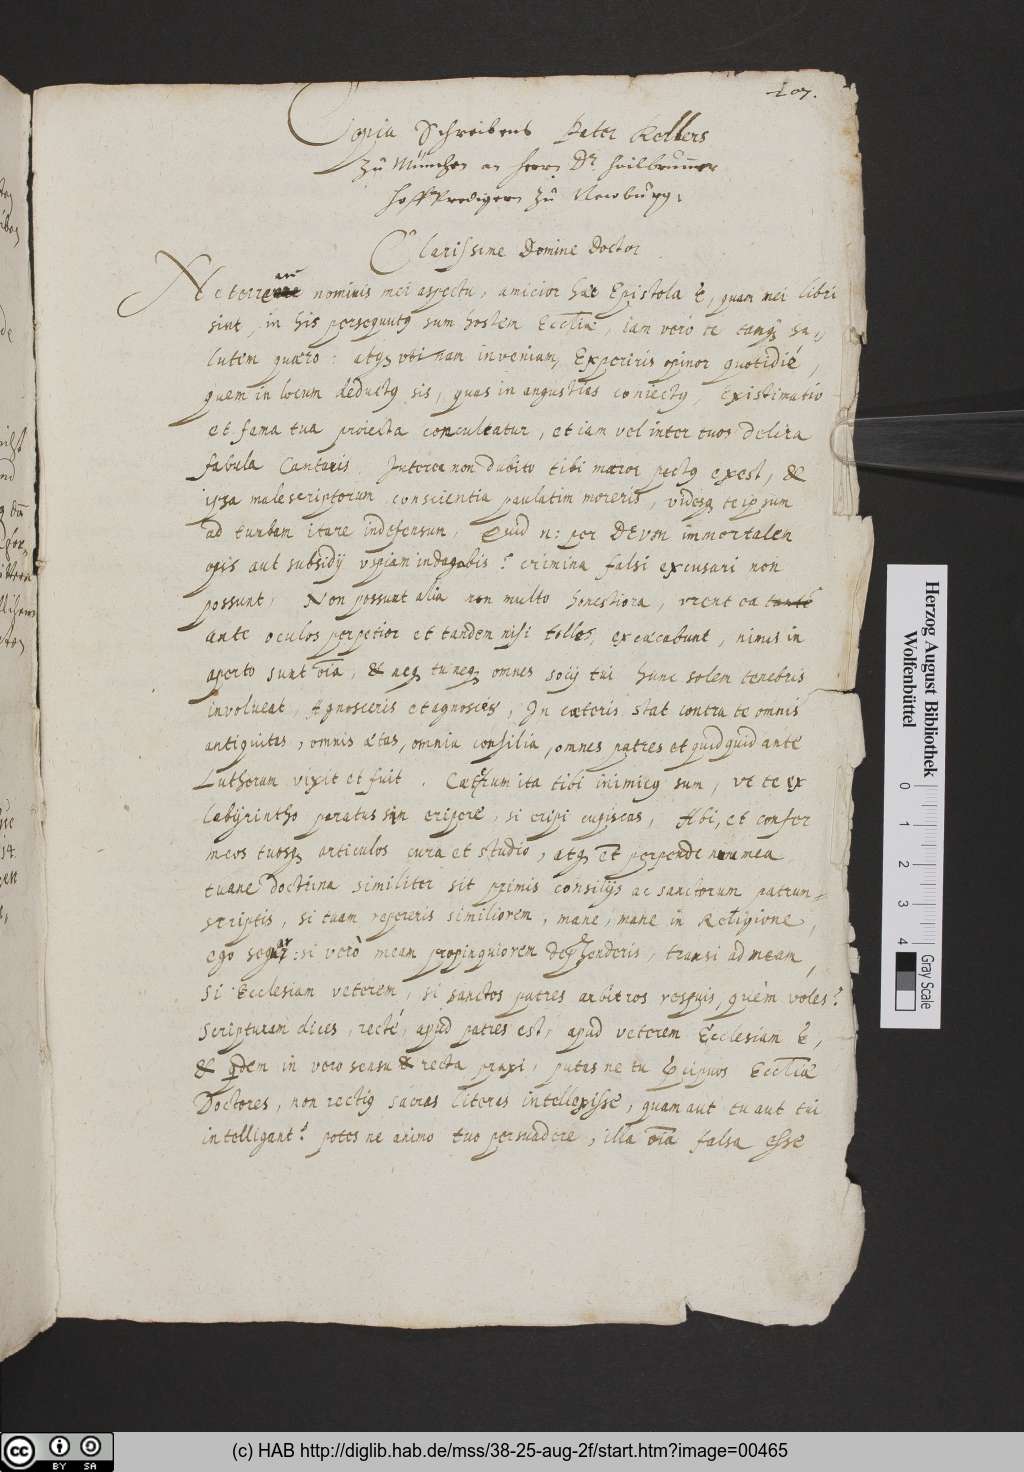 207.
Copia Schreibens Pater Kellers
Zu München an herrn Dr Heilbrunner
Hoffpredigern zu Newburg.
Clarissime Domine Doctor
Ne terreare nominis mei aspectu, amicior haec Epistola ē, quam mei libri
sint, in his persequutꝰ sum hostem Eccliae, iam vero te tanqꝫ sa-
lutem quaero: atqꝫ utinam inveniam, Experiris opinor quotidiè,
quem in locum deductꝰ sis, quas in angustias coniectꝰ, existimatio
et fama tua proiecta conculcatur, et iam vel inter tuos delira
fabula Cantaris. Interea non dubito tibi maeror pectꝰ exest, &
ipsa malescriptorum conscientia paulatim moreris, videsqꝫ teipsum
ad tumbam itare indefensum, Quid n: per DEVM immortalem
opis aut subsidij uspiam indagabis? crimina falsi excusari non
possunt, Non possunt alia non multo honestiora, urent ea
ante oculos perpetior et tandem nisi tolles, excaecabunt, nimis in
aperto sunt oīa, & neqꝫ tu neqꝫ omnes socij tui hunc solem tenebris
involueat, Agnosceris et agnosces, In caeteris stat contra te omnis
antiquitas, omnis aetas, omnia consilia, omnes patres et quidquid ante
Lutherum vixit et fuit. Caeterum ita tibi inimicꝰ sum, ut te ex
labÿrintho paratus sim eripere, si eripi cupiscas, Abi, et confer
meos tuosqꝫ articulos cura et studio, atqꝫ et perpende num mea
tuane doctrina similiter sit primis consilijs ac sanctorum patrum-
scriptis, si tuam repereris similiorem, mane, mane in Religione,
ego sequar: si verò meam propinquiorem deprehenderis, transi ad meam,
Si Ecclesiam veterem, si sanctos patres arbitros respuis, quem voles?
Scripturam dices, rectè, apud patres est, apud veterem Ecclesiam ē,
& quidem in vero sensu & recta praxi, putas ne tu praecipuos Eccliae
Doctores, non rectiꝰ sacras literas intellexisse, quam aut tu aut tui
intelligant? potes ne animo tuo persuadere, illa oīa falsa esse
Herzog August Bibliothek
Wolfenbüttel
0 1 2 3 4
Gray Scale
cc BY SA
(c) HAB http://diglib.hab.de/mss/38-25-aug-2f/start.htm?image=00465